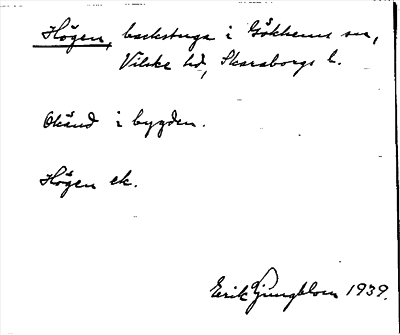 Högen, backstuga i Gökhems sn,
Vilske hd, Skaraborgs l.
Okänd i bygden.
Högen ek.
Erik Ljungblom 1939.